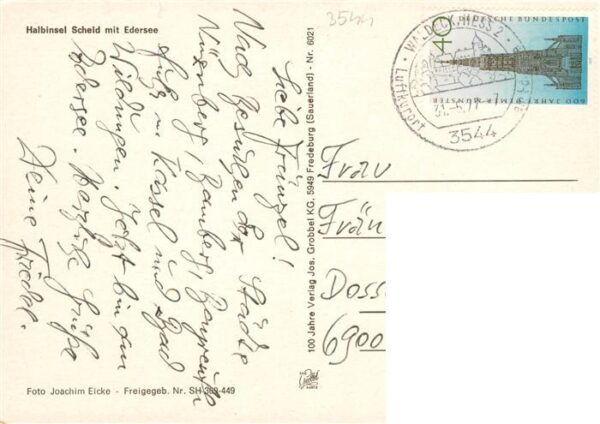 3544
Halbinsel Scheid mit Edersee
Liebe Fränzel!
Nach Besuchen der Städte
Nürnberg, Bamberg, Bayreuth
Kassel und Bad
Wildungen. Jetzt bin am
Edersee. Herzliche Grüße
Deine Friedel.
Foto Joachim Eicke - Freigegeb. Nr. SH 369-449
100 Jahre Verlag Jos. Grobbel KG, 5949 Fredeburg (Sauerland) - Nr. 6021
DEUTSCHE BUNDESPOST
40
600 JAHRE ULMER MÜNSTER
WALDECK, HESS 2
Luftkurort
3544
Frau
Frän
Doss
6900